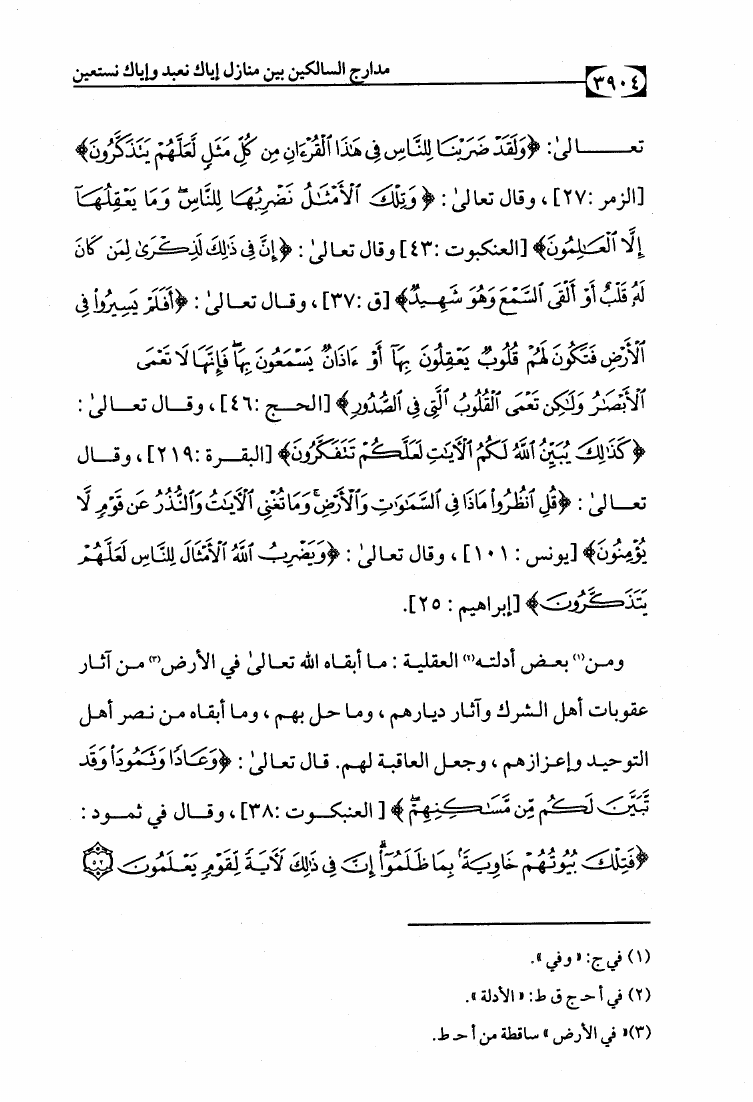 ٣٩٠٤ مدارج السالكين بين منازل إياك نعبد وإياك نستعين
تعـــــالىٰ: ﴿وَلَقَدْ ضَرَبْنَا لِلنَّاسِ فِي هَٰذَا الْقُرْءَانِ مِن كُلِّ مَثَلٍ لَّعَلَّهُمْ يَتَذَكَّرُونَ﴾
[الزمر :٢٧] ، وقال تعالىٰ : ﴿ وَتِلْكَ الْأَمْثَٰلُ نَضْرِبُهَا لِلنَّاسِ ۖ وَمَا يَعْقِلُهَآ
إِلَّا الْعَٰلِمُونَ﴾ [العنكبوت :٤٣] وقال تعالىٰ : ﴿إِنَّ فِي ذَٰلِكَ لَذِكْرَىٰ لِمَن كَانَ
لَهُ قَلْبٌ أَوْ أَلْقَى السَّمْعَ وَهُوَ شَهِيدٌ﴾ [ق :٣٧] ، وقال تعـالىٰ : ﴿أَفَلَمْ يَسِيرُوا فِي
الْأَرْضِ فَتَكُونَ لَهُمْ قُلُوبٌ يَعْقِلُونَ بِهَآ أَوْ ءَاذَانٌ يَسْمَعُونَ بِهَا ۖ فَإِنَّهَا لَا تَعْمَى
الْأَبْصَٰرُ وَلَٰكِن تَعْمَى الْقُلُوبُ الَّتِي فِي الصُّدُورِ﴾ [الحـج :٤٦] ، وقـال تعـالىٰ :
﴿كَذَٰلِكَ يُبَيِّنُ اللَّهُ لَكُمُ الْآيَٰتِ لَعَلَّكُمْ تَتَفَكَّرُونَ﴾ [البقـرة :٢١٩] ، وقـال
تعـالىٰ : ﴿قُلِ انظُرُوا مَاذَا فِي السَّمَٰوَٰتِ وَالْأَرْضِ ۚ وَمَا تُغْنِي الْآيَٰتُ وَالنُّذُرُ عَن قَوْمٍ لَّا
يُؤْمِنُونَ﴾ [يونس : ١٠١] ، وقال تعالىٰ : ﴿وَيَضْرِبُ اللَّهُ الْأَمْثَالَ لِلنَّاسِ لَعَلَّهُمْ
يَتَذَكَّرُونَ﴾ [إبراهيم : ٢٥].
ومن(١) بعض أدلته(٢) العقلية : ما أبقاه الله تعالىٰ في الأرض(٣) من آثار
عقوبات أهل الشرك وآثار ديارهم ، وما حل بهم ، وما أبقاه من نصر أهل
التوحيد وإعزازهم ، وجعل العاقبة لهم. قال تعالىٰ : ﴿وَعَادًا وَثَمُودَاْ وَقَد
تَّبَيَّنَ لَكُم مِّن مَّسَٰكِنِهِمْ ۖ﴾ [ العنبكوت :٣٨] ، وقـال في ثمـود :
﴿فَتِلْكَ بُيُوتُهُمْ خَاوِيَةً بِمَا ظَلَمُوٓا ۗ إِنَّ فِي ذَٰلِكَ لَآيَةً لِّقَوْمٍ يَعْلَمُونَ ۝٥٢
(١) في ج: « وفي ».
(٢) في أ ح ج ق ط: « الأدلة ».
(٣)« في الأرض » ساقطة من أ ح ط.